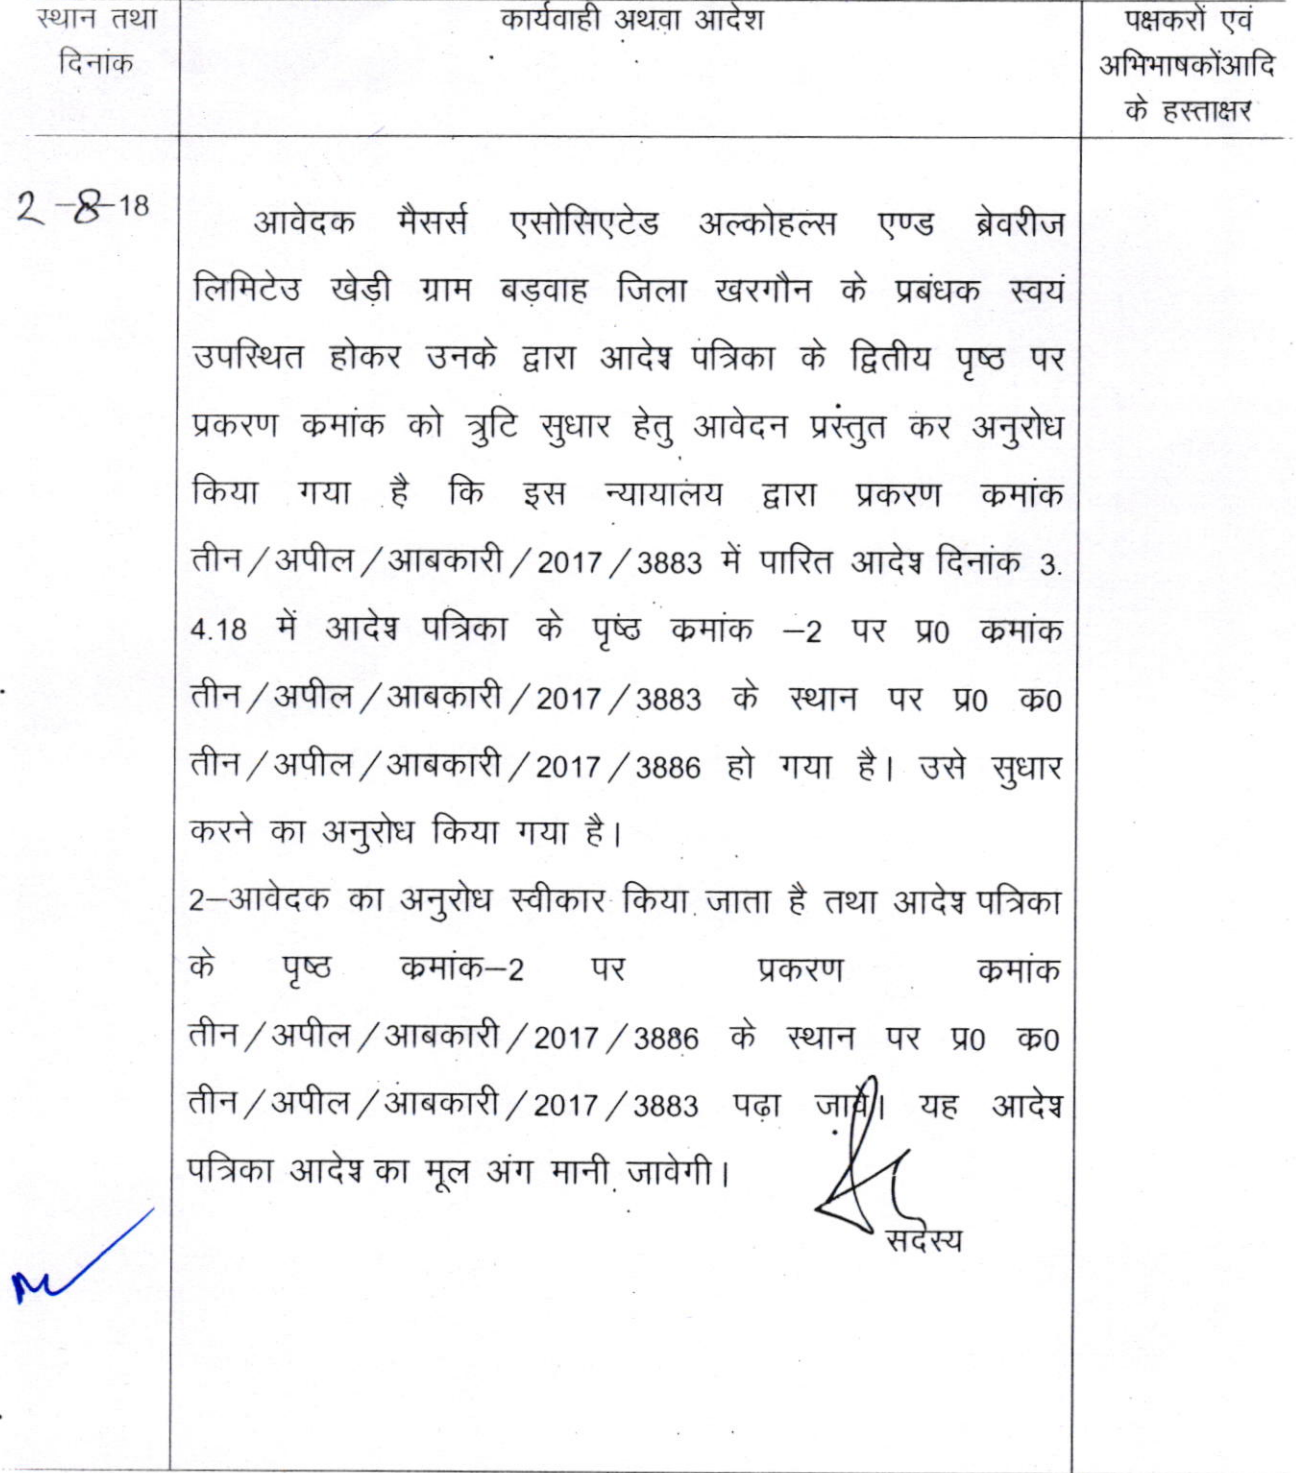 स्थान तथा
दिनांक
कार्यवाही अथवा आदेश
पक्षकरों एवं
अभिभाषकोंआदि
के हस्ताक्षर
2-8-18
आवेदक मैसर्स एसोसिएटेड अल्कोहल्स एण्ड ब्रेवरीज
लिमिटेउ खेड़ी ग्राम बड़वाह जिला खरगौन के प्रबंधक स्वयं
उपस्थित होकर उनके द्वारा आदेश पत्रिका के द्वितीय पृष्ठ पर
प्रकरण कमांक को त्रुटि सुधार हेतु आवेदन प्रस्तुत कर अनुरोध
किया गया है कि इस न्यायालय द्वारा प्रकरण कमांक
तीन/अपील/आबकारी/2017/3883 में पारित आदेश दिनांक 3.
4.18 में आदेश पत्रिका के पृष्ठ कमांक –2 पर प्र0 कमांक
तीन/अपील/आबकारी/2017/3883 के स्थान पर प्र0 क0
तीन/अपील/आबकारी/2017/3886 हो गया है। उसे सुधार
करने का अनुरोध किया गया है।
2–आवेदक का अनुरोध स्वीकार किया जाता है तथा आदेश पत्रिका
के पृष्ठ कमांक–2 पर प्रकरण कमांक
तीन/अपील/आबकारी/2017/3886 के स्थान पर प्र0 क0
तीन/अपील/आबकारी/2017/3883 पढ़ा जावे। यह आदेश
पत्रिका आदेश का मूल अंग मानी जावेगी।
सदस्य